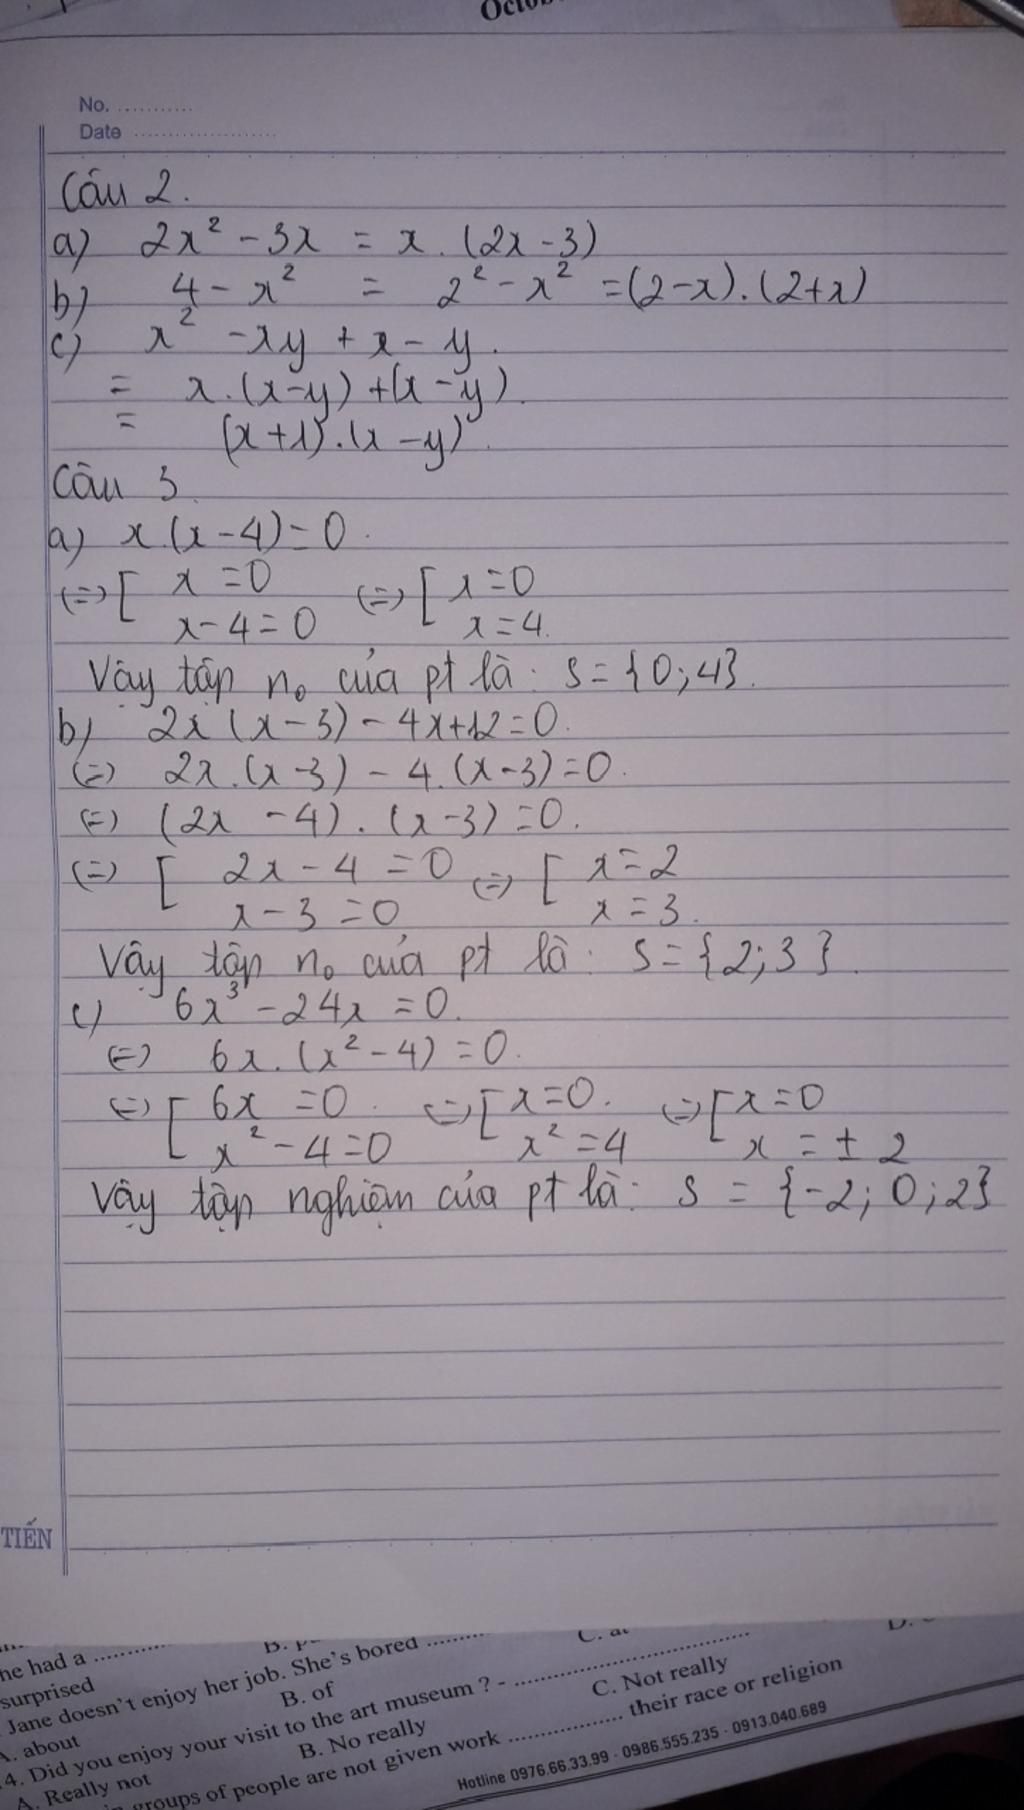 No. ...........
Date .....................
Câu 2.
a) 2x² - 3x = x.(2x-3)
b) 4 - x² = 2² - x² = (2-x).(2+x)
c) x² - xy + x - y.
= x.(x-y) + (x-y).
= (x+1).(x-y).
Câu 3.
a) x.(x-4)=0.
(=) [ x=0 (=) [ x=0
x-4=0 x=4.
Vậy tập n₀ của pt là: S={0;4}.
b) 2x(x-3) - 4x+12=0.
(=) 2x.(x-3) - 4.(x-3)=0.
(=) (2x-4).(x-3)=0.
(=) [ 2x-4=0 (=) [ x=2
x-3=0 x=3.
Vậy tập n₀ của pt là: S={2;3}.
c) 6x³ - 24x = 0.
(=) 6x.(x²-4)=0.
(=) [ 6x=0. (=) [ x=0. (=) [ x=0
x²-4=0 x²=4 x=±2
Vậy tập nghiệm của pt là: S = {-2;0;2}
TIẾN
he had a ..............
surprised
Jane doesn't enjoy her job. She's bored ..........
A. about
B. of
4. Did you enjoy your visit to the art museum ? - ..............................
A. Really not
B. No really
C. Not really
groups of people are not given work .............. their race or religion
Hotline 0976.66.33.99 · 0986.555.235 · 0913.040.689